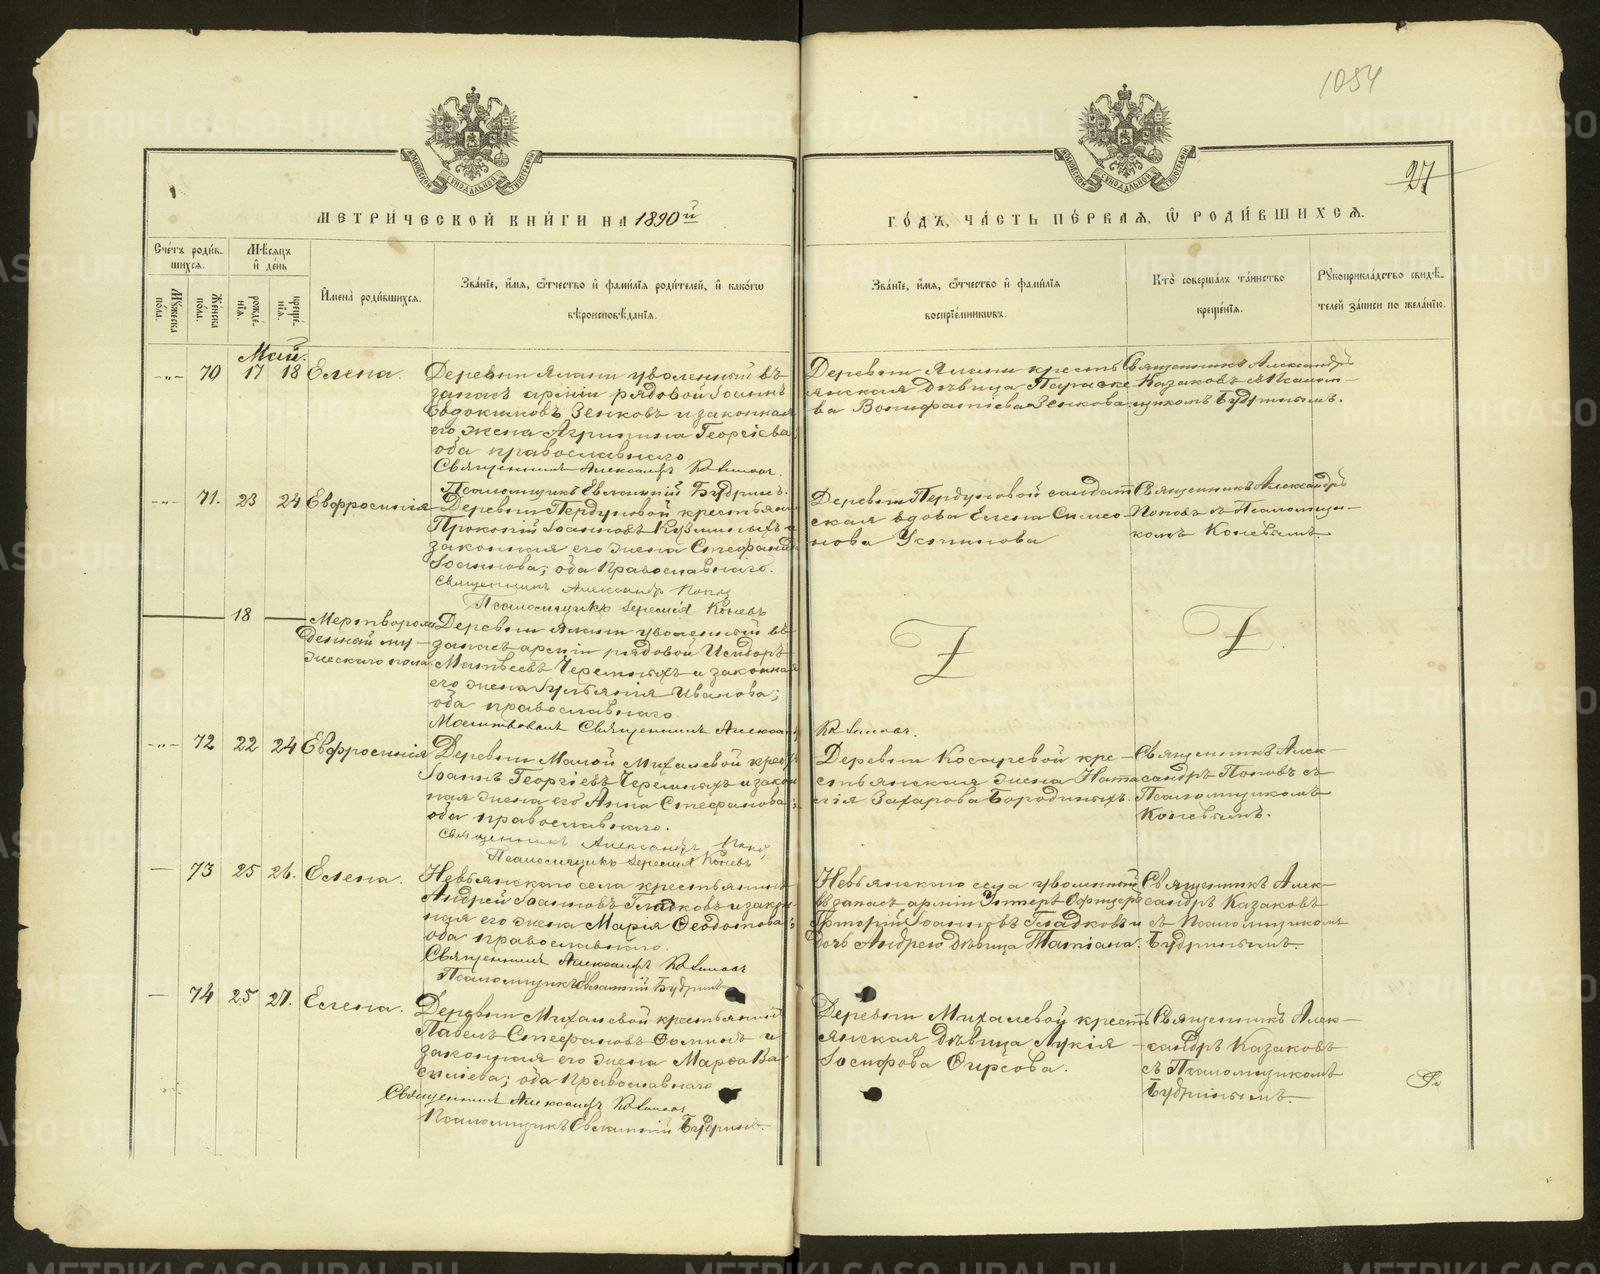 1054
27
МОСКОВСКОЙ СѴНОДАЛЬНОЙ ТИПОГРАФІИ
МОСКОВСКОЙ СѴНОДАЛЬНОЙ ТИПОГРАФІИ
МЕТРИ́ЧЕСКОЙ КНИ́ГИ НА 1890й
ГО́ДЪ, ЧА́СТЬ ПЕ́РВАЯ, Ѽ РОДИ́ВШИХСЯ.
Сче́тъ роди́в-
шихся.
Мѣсяцъ
и҆ де́нь
Мꙋжеска по́ла.
Же́нска по́ла.
рожде́-
нїя.
креще́-
нїя.
И҆мена̀ роди́вшихся.
Зва́нїе, и҆́мя, ѻ҆́тчество и҆ фами́лїя роди́телей, и҆ како́гѡ
вѣроисповѣ́данїя.
Зва́нїе, и҆́мя, ѻ҆́тчество и҆ фами́лїя
воспрїе́мникѡвъ.
Кто̀ соверша́лъ та́инство
креще́нїя.
Рꙋкоприкла́дство свидѣ́-
телей за́писи по жела́нїю.
Май.
-„- 70 17 18 Елена.
Деревни Ялани уволенный въ
запасъ арміи рядовой Іоаннъ
Евдокимовъ Зенковъ и законная
его жена Агрипина Георгіева
оба православнаго
Священникъ Александръ Казаковъ
Псаломщикъ Евлампій Будринъ.
Деревни Ялани кресть
янская дѣвица Параске
ва Вонифатіева Зенкова.
Священникъ Александръ
Казаковъ съ Псалом-
щикомъ Будринымъ.
-„- 71. 23 24 Евфросинія
Деревни Пердуновой крестьянинъ
Прокопій Іоанновъ Кузминыхъ и
законная его жена Стефанида
Іоаннова; оба Православнаго.
Священникъ Александръ Поповъ
Псаломщикъ Іеремія Коневъ
Деревни Пердуновой солдат
ская вдова Елена Симео-
нова Устинова
Священникъ Александръ
Поповъ съ Псаломщи-
комъ Коневымъ.
18 Мертворож
денный му-
жескаго пола.
Деревни Ялани уволенный въ
запасъ арміи рядовой Исидоръ
Матѳеевъ Черемныхъ и законная
его жена Іуліанія Иванова;
оба православнаго
Молитвовалъ Священникъ Александръ
Казаковъ.
Z
Z
-„- 72 22 24 Евфросинія
Деревни Малой Михалевой крест.
Іоаннъ Георгіевъ Черемныхъ и закон
ная жена его Анна Стефанова;
оба православнаго.
Священникъ Александръ Поповъ
Псаломщикъ Іеремія Коневъ
Деревни Косаревой кре-
стьянская жена Ната
лія Захарова Бородиныхъ.
Священникъ Алек-
сандръ Поповъ съ
Псаломщикомъ
Коневымъ.
— 73 25 26. Елена.
Невьянскаго села крестьянинъ
Андрей Іоанновъ Гладковъ и закон
ная его жена Марія Ѳеодотова;
оба православнаго.
Священникъ Александръ Казаковъ
Псаломщикъ Евлампій Будринъ
Невьянскаго села уволенный
въ запасъ арміи Унтеръ Офицеръ
Григорій Іоанновъ Гладковъ и
дочь Андрею дѣвица Татіана.
Священникъ Алек-
сандръ Казаковъ
съ Псаломщикомъ
Будринымъ.
— 74 25 27. Елена.
Деревни Михалевой крестьянинъ
Павелъ Стефановъ Ѳоминъ и
законная его жена Марѳа Ва
силіева; оба Православнаго
Священникъ Александръ Казаковъ
Псаломщикъ Евлампій Будринъ.
Деревни Михалевой кресть
янская дѣвица Лукія
Іосифова Ѳирсова.
Священникъ Алек-
сандръ Казаковъ
съ Псаломщикомъ
Будринымъ.
METRIKI.GASO-URAL.RU